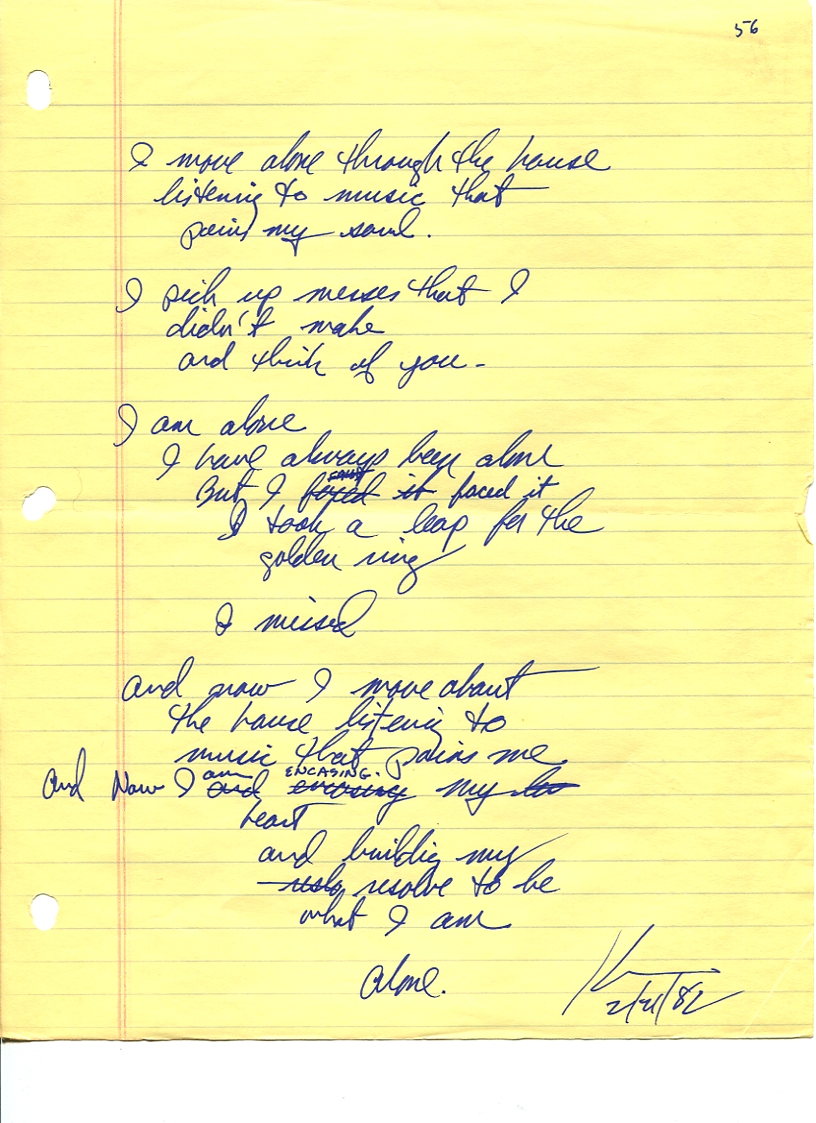 56
I move alone through the house
listening to music that
pains my soul.
I pick up messes that I
didn't make
and think of you-
I am alone
I have always been alone
But I faced it faced it
I took a leap for the
golden ring
I missed
And now I move about
the house listening to
music that pains me
And Now I am ENCASING. my
heart
and building my
resolve to be
what I am
Alone.